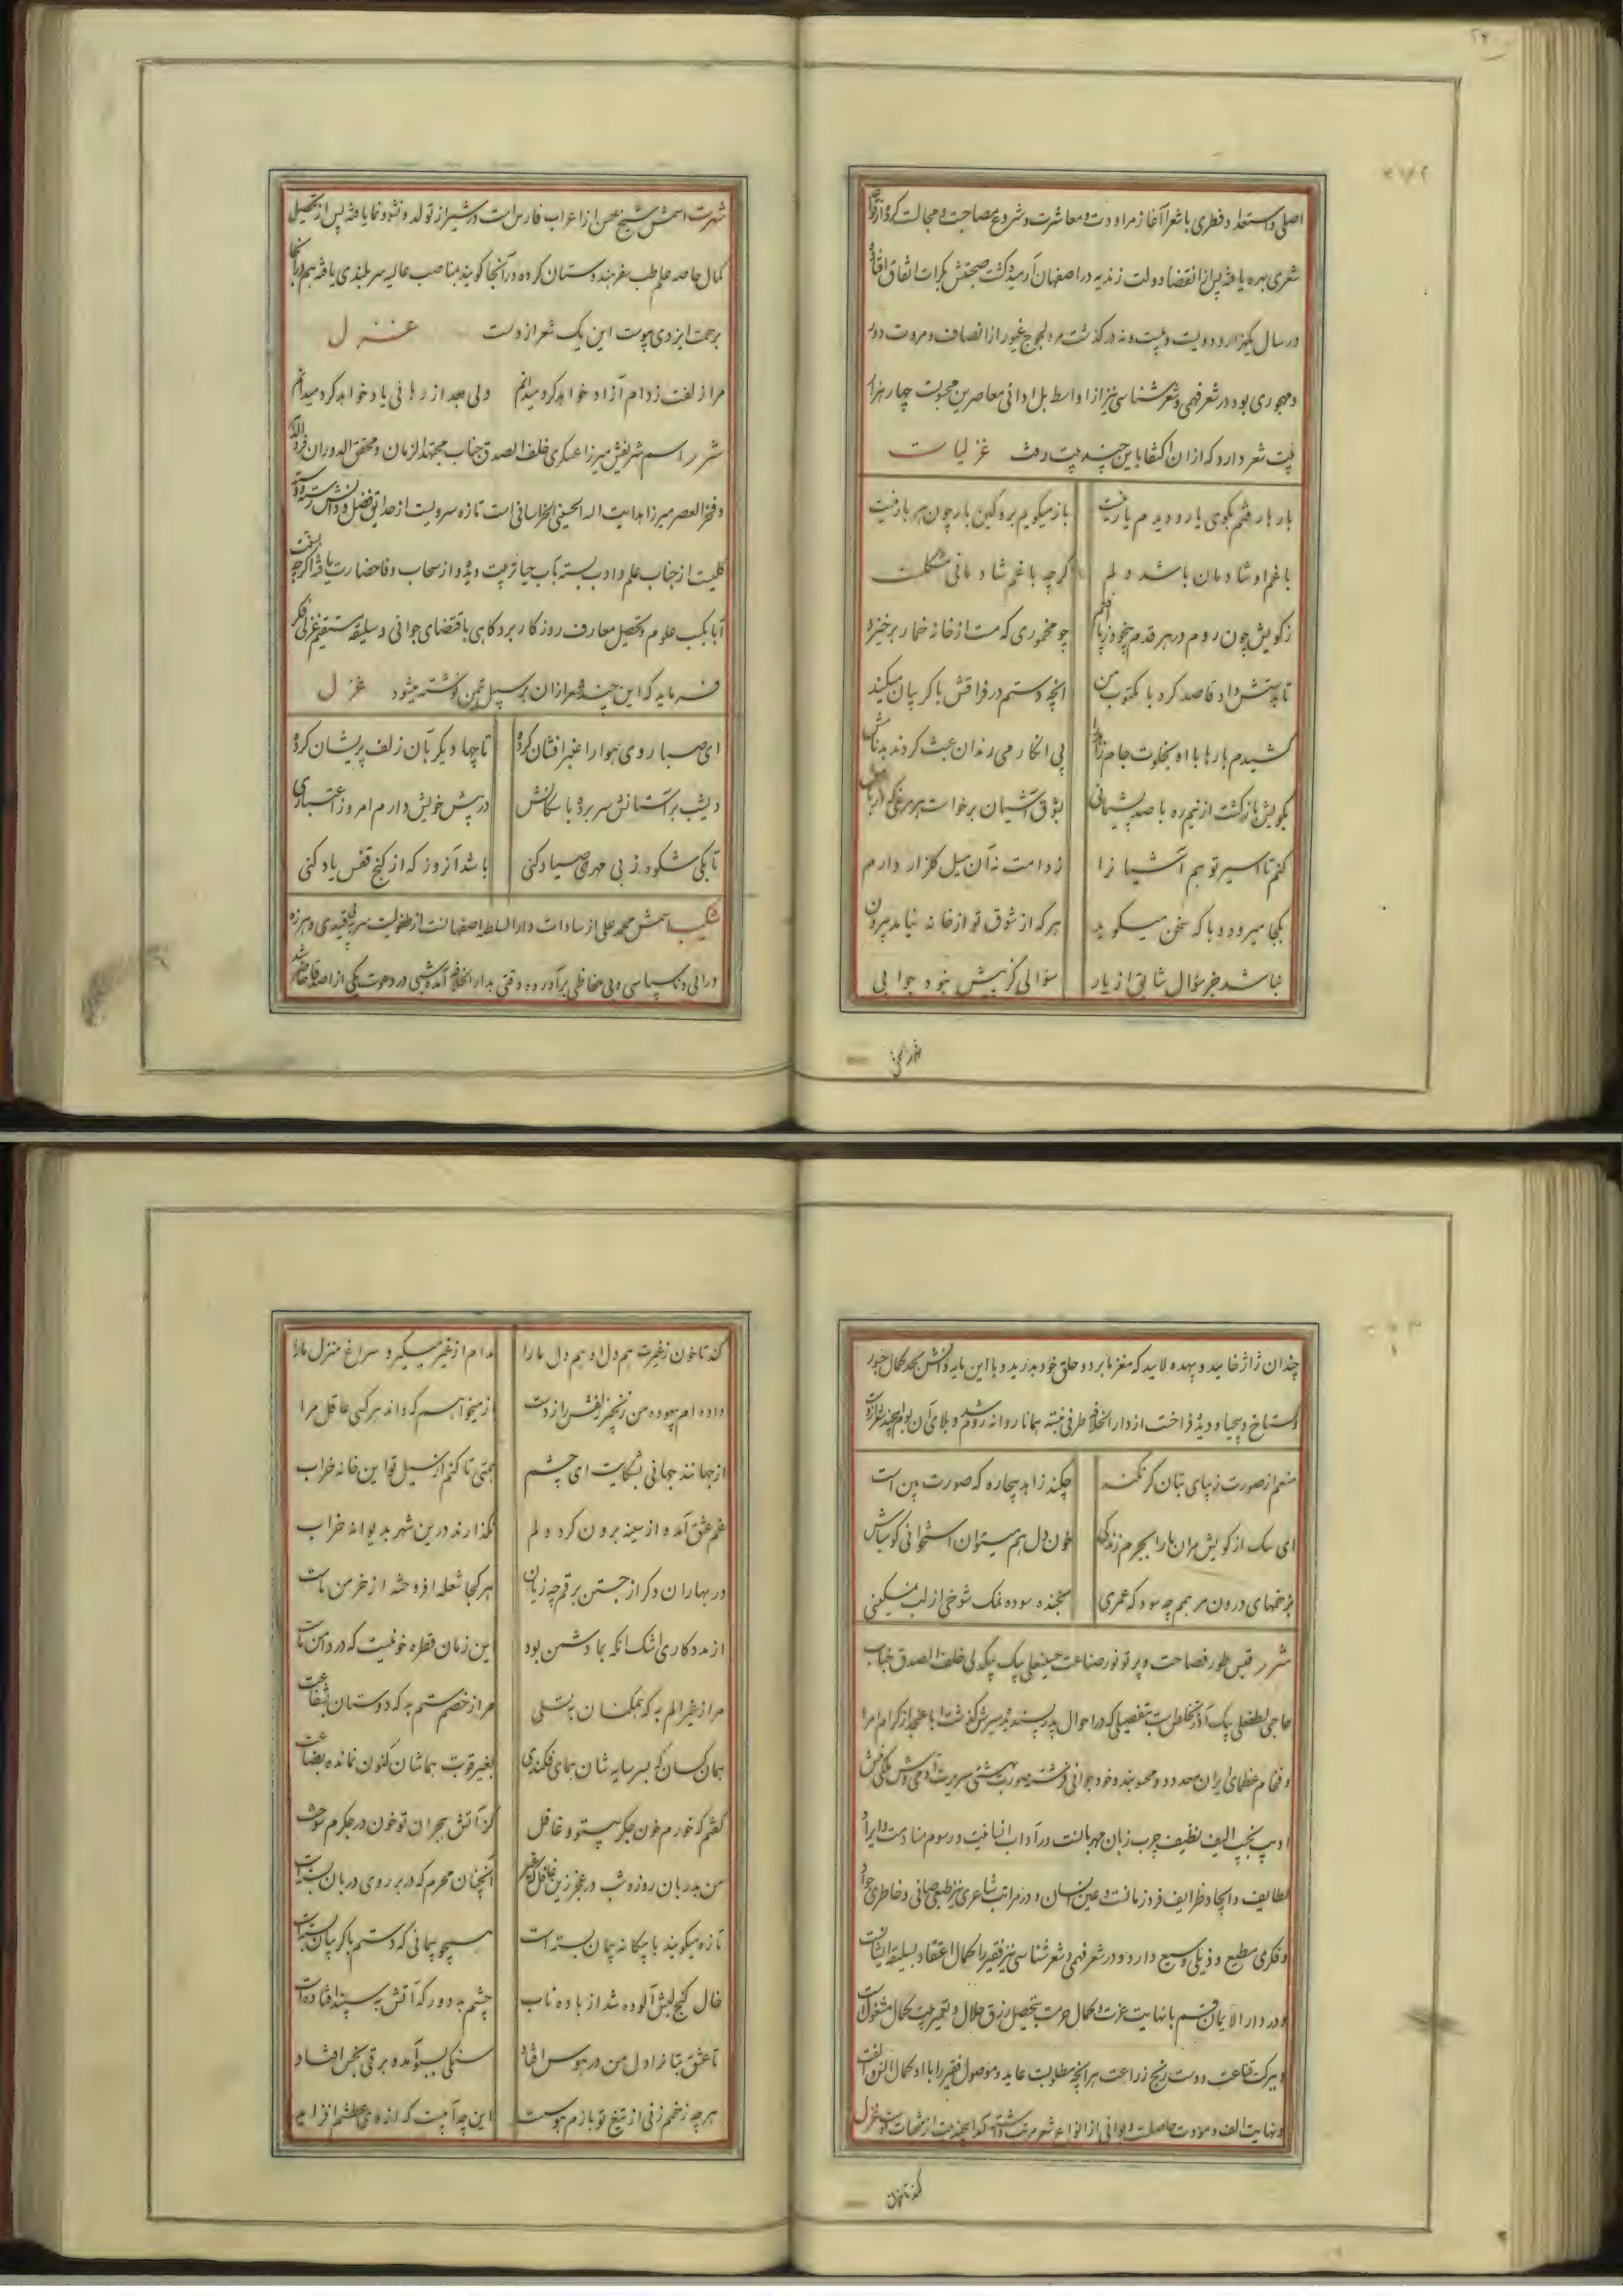 اصلی و استعداد فطری با شعرا آغاز مراودت و معاشرت و شروع مصاحبت و مجالست کرده از
شعری بهره یافته پس از انقضا دولت زندیه در اصفهان آرمید و گشت صحبتش بکرات اتفاق افتاد
در سال یکهزار و دویست و بیست و نه در گذشت مرد لجوج غیور از انصاف و مروت دور
و مهجوری بود در شعر فهمی و شعر شناسی نیز از اواسط بل ادانی معاصرین محسوبست چهار هزار
بیت شعر دارد که از ان اکتفا باین چند بیت رفت غزلیات
بار بار فتم بکوی یار و دیدم یار نیست
باز میکویم برو کین بار چون هر بار نیست
با غم او شادمان باشد دلم
کرچه با غم شادمانی مشکلست
ز کویش چون روم در هر قدم بیخود ز پا افتم
چو مخموری که مست از خانه خمار برخیزد
تا بدستش داد قاصد کرد با مکتوب من
انچه دستم در فراقش با کریبان میکند
کشیدم بارها با او بخلوت جام
پی انکار می رندان عبث کردند بدنامش
بکویش باز کشت از نیم ره با صد پشیمانی
بشوق آشیان برخاست هر مرغی که
کنم تا اسیر تو هم آشیانرا
ز دامت نه آن میل کلزار دارم
بکجا میرود و با که سخن میکوید
هر که از شوق تو از خانه نیاید بیرون
نباشد جز سؤال شانی از یار
سؤالی کز پیش نبود جوابی
شهرت اسمش شیخ حسن از اعراب فارس است در شیراز تولد و نشو و نما یافته پس از تحصیل
کمال خاصه علم طب سفر هندوستان کرده در آنجا کویند بمناصب عالیه سربلندی یافته هم در آنجا
برحمت ایزدی پیوست این یک شعر ازوست غزل
مرا زلفت ز دام آزاد خواهد کرد میدانم
ولی بعد از رهائی یاد خواهد کرد میدانم
شرر اسم شریفش میرزا عسکری خلف الصدق جناب مجتهد الزمان و محقق الدوران
و فخر العصر میرزا هدایت اله الحسینی الخراسانی است تازه سرویست از حدایق فضل و دانش رسته
کلیست از جناب علم و ادب بسته بآب حیا تربیت دیده و از سحاب وفا حضارت یافته اگرچه
آبا بکسب علوم و تحصیل معارف روزکار برد کاهی باقتضای جوانی و سلیقه مستقیم غزلی فکر
فرماید که این چند شعر از ان بر سبیل تیمن نوشته میشود غزل
ای صبا روی هوا را عنبر افشان کرده
تا چها دیکر بآن زلف پریشان کرده
دیشب بر آستانش سر برده با سکانش
در پیش خویش دارم امروز اعتباری
تا بکی شکوه ز بی مهری صیاد کنی
باشد آنروز که از کنج قفس یاد کنی
شکیب اسمش محمد علی از سادات دار السلطنه اصفهانست از طفولیت سر به بیقیدی و هرزه
درائی و ناسپاسی و بی حفاظی برآورده وقتی بدار الخلافه آمده شبی در دعوت یکی از اصدقا حاضر شد
شد درائی
چندان ژاژ خایید و بیهده لایید که مغز ما برد و حلق خود بدرید و با این پایه دانش بحد کمال جسور
و کستاخ و بیحیا و دیده فراخت از دار الخلافه طرفی نبسته همانا روانه روم شد و بلای آن بوم
منعم از صورت زیبای بتان کر نکند
چکند زاهد بیچاره که صورت بین است
ای سک از کویش مران ما را بجرم زندکی
خون دل هم میتوان استخوانی کو مباش
بزخمهای درون مرهمم چه سود که عمری
بخنده سوده نمک شوخی از لب نمکینی
شرر قبس طور فصاحت و پرتو نور صناعت حسینعلی بیک بیکدلی خلف الصدق جناب
حاجی لطفعلی بیک آذر تخلص است بتفصیلی که در احوال پدر پسندیده سیرش کذشت ابا عن جد از کرام امرا
و فخام عظمای ایران معدود و محسوبند و خود جوانی فرشته صورت بهشتی سیرت آدمی وش ملکی منش
ادیب نجیب الیف نظیف چرب زبان مهربانست در آداب انسانیت و رسوم منادمت و ایراد
لطایف و ایجاد ظرایف فرد زمانست و عین انسان و در مراتب شاعری نیز طبعی صافی و خاطری جواد
و فکری مطیع و ذیلی وسیع دارد و در شعر فهمی و شعر شناسی نیز فقیر را کمال اعتقاد بسلیقه ایشانست
و در دار الایمان قم با نهایت عزت و کمال حرمت بتحصیل رزق حلال و تعمیر بیت کمال مشغولست
و ببرکت قناعت و دست رنج زراعت هر انچه مطلوبست عاید و موصول فقیر را با او کمال انس و الفت
و نهایت الف و مودت حاصلست دیوانی از انواع شعر مرتب داشته غزل
کند تا خون ز غیرت هم دل او هم دل ما را
مدام از غیر میکیرد سراغ منزل ما را
داده ام بیهوده من زنجیر زلفش را ز دست
زمیخواهم که داند هر کسی عاقل مرا
از جهانند جهانی بشکایت ای چشم
همتی تا کنم از سیل تو این خانه خراب
غم عشق آمد و از سینه برون کرد دلم
نکذارند درین شهر بدیوانه خراب
در بهاران دکر از جستن برقم چه زیان
هر کجا شعله افروخته از خرمن ماست
از مددکاری اشک انکه بما دشمن بود
این زمان قطره خونیست که در دامن ماست
مرا ز غیر الم به که همکنان به تسلی
مرا ز خصم ستم به که دوستان بشفاعت
همان کسان که بسر سایه شان همای فکندی
بغیر قوت هما شان کنون نمانده بضاعت
کفتم که خورم خون جکر بیتو و غافل
کز آتش هجران تو خون در جکرم سوخت
من بدربان روز و شب در عجز زین غافل که غیر
آنچنان محرم که در بر روی دربان بسته است
تازه میکویند با بیکانه پیمان بسته است
همچو پیمانی که دستم با کریبان بسته است
خال کنج لبش آلوده شد از باده ناب
چشم بد دور که آتش به سپند افتاده است
تا عشق بتانرا دل من در هوس افتاد
سنکی بسبو آمد و برقی بخس افتاد
هر چه زخمم زنی از تیغ تو بازم هوست
این چه آبیست که از وی عطشم افزاید
کند تا خون